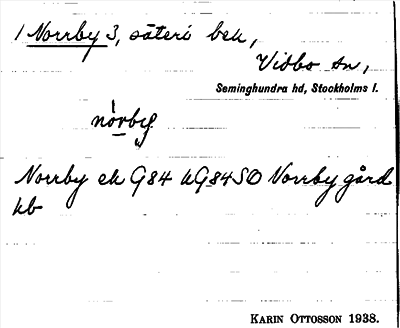 1 Norrby 3, säteri bek,
Vidbo sn,
Seminghundra hd, Stockholms l.
nòrby
Norrby ek G84 kG84SO Norrby gård
kb
KARIN OTTOSSON 1938.